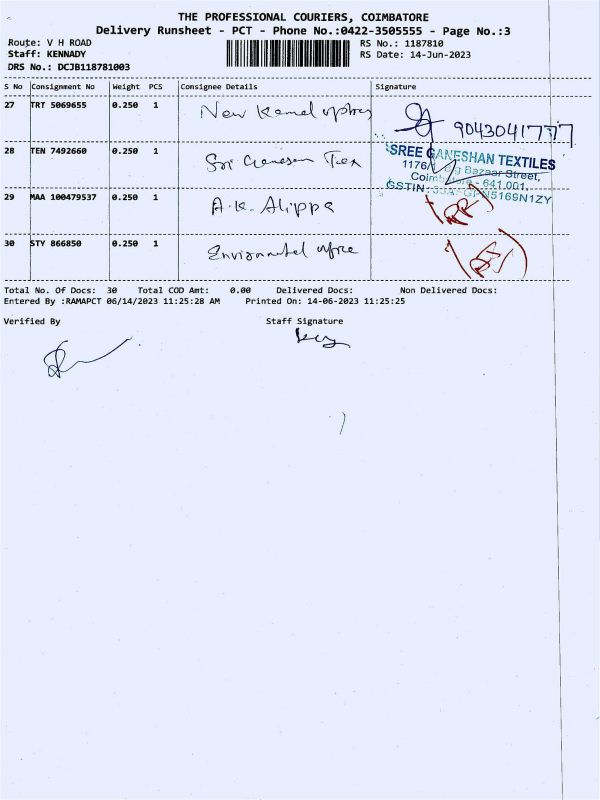 THE PROFESSIONAL COURIERS, COIMBATORE
Delivery Runsheet - PCT - Phone No.:0422-3505555 - Page No.:3
Route: V H ROAD
Staff: KENNADY
DRS No.: DCJB118781003
RS No.: 1187810
RS Date: 14-Jun-2023
S No Consignment No Weight PCS Consignee Details Signature
27 TRT 5069655 0.250 1 New Kamal
9043041777
28 TEN 7492660 0.250 1 Sri Ganesan Tex
SREE GANESHAN TEXTILES
1176/ Bazaar Street,
Coimbatore - 641 001.
GSTIN
29 MAA 100479537 0.250 1 A.K. Alippa
30 STY 866850 0.250 1 Environmental office
Total No. Of Docs: 30 Total COD Amt: 0.00 Delivered Docs: Non Delivered Docs:
Entered By :RAMAPCT 06/14/2023 11:25:28 AM Printed On: 14-06-2023 11:25:25
Verified By Staff Signature